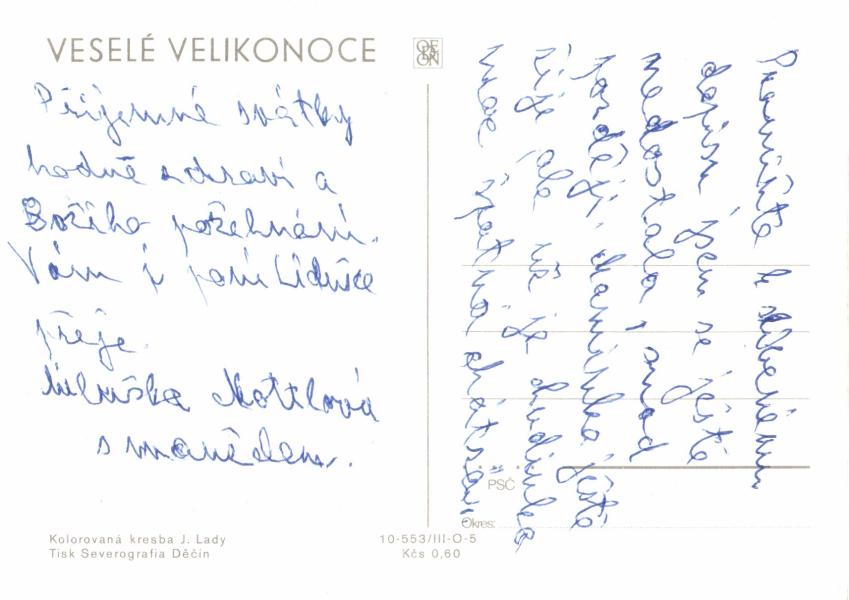 VESELÉ VELIKONOCE
Příjemné svátky
hodně zdraví a
Božího požehnání.
Vám i paní Lidušce
přeje.
Miluška Nottlová
s manželem.
Promiňte k slíbenému
dopisu jsem se ještě
nedostala, snad
později, maminka ještě
žije ale už je hodinka
moc špatná
PSČ
Okres:
Kolorovaná kresba J. Lady
Tisk Severografia Děčín
10-553/III-O-5
Kčs 0,60